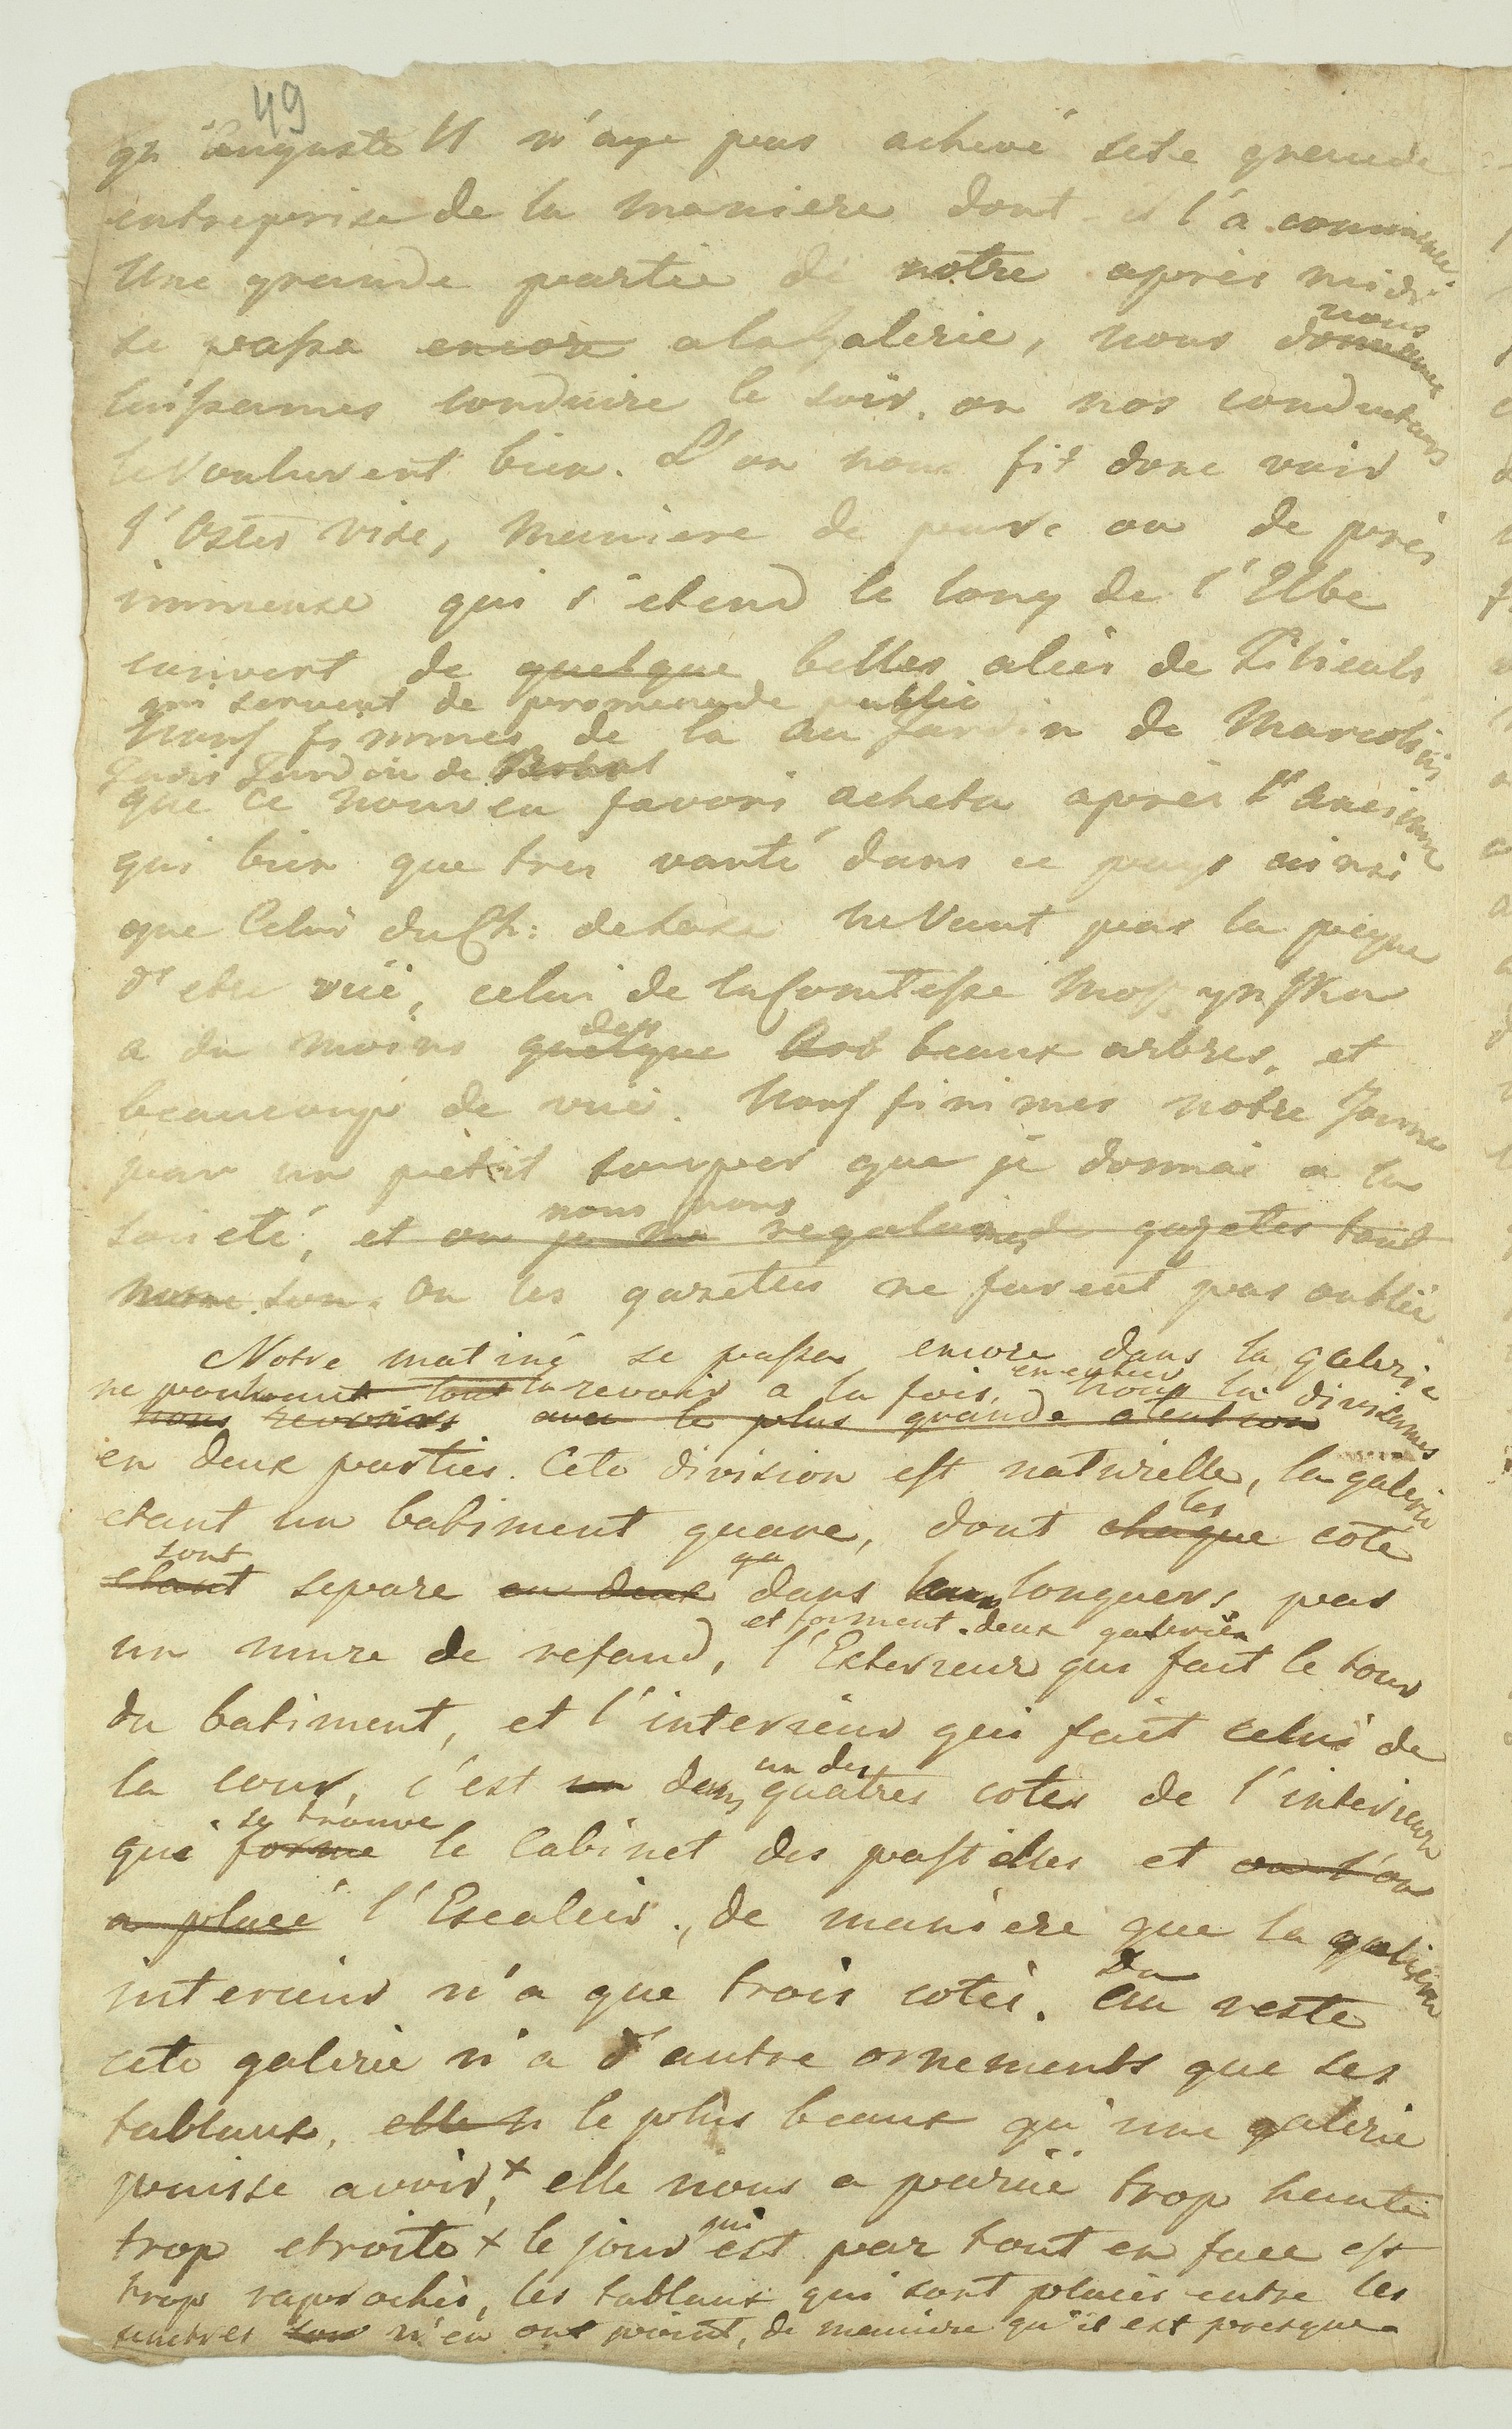 49
qu'Auguste II n'aye pas achevé sete grande
entreprise de la maniere dont il l'a commencé.
Une grande partie de notre après midi
se passa encore a la Galerie, nous
nous
laissames conduire le soir, ou nos conducteurs
le Voulurent bien. L'on nous fit donc voir
l'Oster vise, maniere de parc ou de près
immense qui s'etend le long de l'Elbe
couvert de quelque belles aleés de
qui servent de promenade public
Nous fimmes de la au Jardin de Marcolini
Jadis Jardin de
que ce nouveu favori acheta après l'
qui bien que tres vanté dans ce pays ainsi
que Celui du Ch: de Saxe ne Vaut pas la peyne
d'etre vüe, celui de la Comtesse Moszynska
des
a du moins quelque Arb beaux arbres, et
beaucoup de vüe. Nous finimes notre Journe
par un petit souper que je donnai a la
nous nous
societé, et ou je me regalames de gazetes tout
mon son. Ou les gazettes ne furent pas oublié
Notre matiné se passa encore dans la galerie
ne pouvant tout la revoir a la fois, en entier nous la divisames
nous revoions avec le plus grande atention
en deux parties. Cete division est naturelle, la galerie
etant un batiment quare, dont chaque les coté
sont
etant separe en deux dans leur longuers par
et forment deux galeries
un mure de refand, l'Exterieur qui fait le tour
du batiment, et l'interieur qui fait celui de
un des
la cour, c'est un dans quatres cotes de l'interieur
se trouve
que forme le Cabinet des pastelles et ou l'on
a placé l'Escalier, de maniere que la galerie
Du
interieur n'a que trois cotés. Au reste
cete galerie n'a d'autre ornements que ses
tablaux, elle n le plus beaux qu'une galerie
puisse avoir, + elle nous a parüe trop haute
qui
trop etroite + le jour est par tout en face est
trop raprochés, les tablaux qui sont placés entre les
fenetres n'en ont point, de maniere qu'il est presque